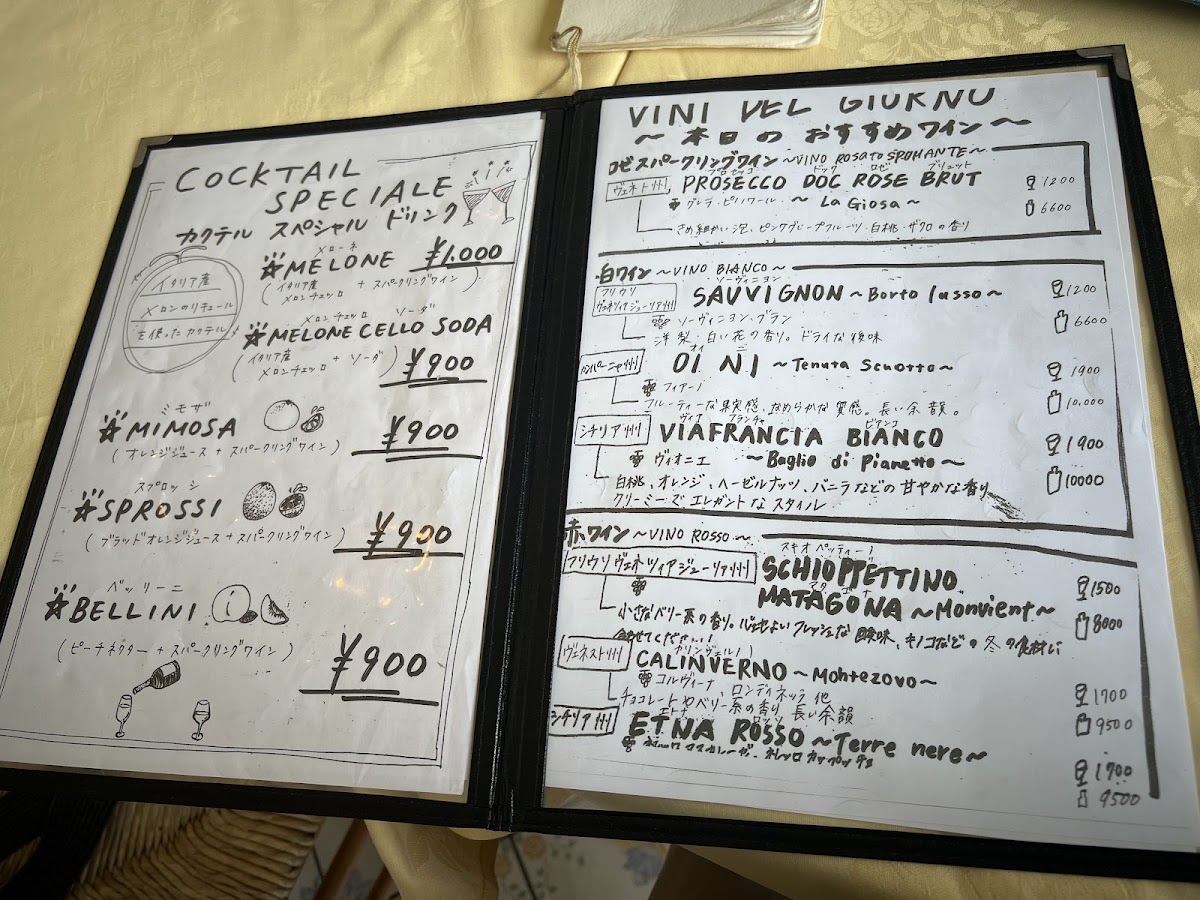 COCKTAIL
SPECIALE
カクテル スペシャル ドリンク
イタリア産
メロンのリキュール
を使ったカクテル
メローネ
MELONE ¥1.000
(イタリア産
メロンチェッロ + スパークリングワイン)
メロンチェッロ ソーダ
MELONE CELLO SODA
(イタリア産
メロンチェッロ + ソーダ) ¥900
ミモザ
MIMOSA ¥900
(オレンジジュース + スパークリングワイン)
スプロッシ
SPROSSI ¥900
(ブラッドオレンジジュース + スパークリングワイン)
ベッリーニ
BELLINI
(ピーチネクター + スパークリングワイン) ¥900
VINI DEL GIORNO
~本日のおすすめワイン~
ロゼスパークリングワイン ~VINO ROSATO SPOMANTE~
プロセッコ ドック ロゼ ブリュット
ヴェネト州 PROSECCO DOC ROSE BRUT 1200
グレラ・ピノノワール ~ La Giosa ~ 6600
きめ細かい泡、ピンクグレープフルーツ、白桃・ザクロの香り
白ワイン ~VINO BIANCO~
ソーヴィニヨン
フリウリ
ヴェネツィアジューリア州 SAUVIGNON ~Borto lusso~ 1200
ソーヴィニヨン、ブラン 6600
洋梨・白い花の香り。ドライな後味
オイ ニ
カンパーニャ州 OI NI ~Tenuta Scuotto~ 1900
フィアーノ
フルーティーな果実感、なめらかな質感。長い余韻。 10.000
ヴィア フランチャ ビアンコ
シチリア州 VIAFRANCIA BIANCO 1900
ヴィオニエ ~Baglio di Pianetto~
白桃、オレンジ、ヘーゼルナッツ、バニラなどの甘やかな香り 10000
クリーミーズエレガントなスタイル
赤ワイン ~VINO ROSSO~
スキオペッティーノ
フリウリヴェネツィアジューリア州 SCHIOPPETTINO 1500
MATAGONA ~Monvient~
小さなベリー系の香り。心地よいフレッシュな酸味、キノコなどの冬の食材に 8000
合わせてください!
カリンヴェルノ
ヴェネスト州 CALINVERNO ~Montezovo~
コルヴィーナ、ロンディネッラ他 1700
チョコレートやベリー系の香り 長い余韻 9500
エトナ ロッソ
シチリア州 ETNA ROSSO ~Terre nere~
ネレッロマスカレーゼ、ネレッロカップッチョ 1700
9500